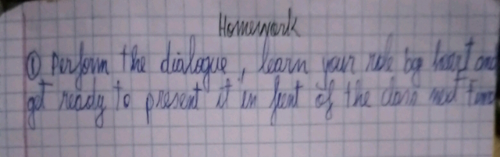 Homework
① Perform the dialogue, learn your role by heart and
get ready to present it in front of the class next time